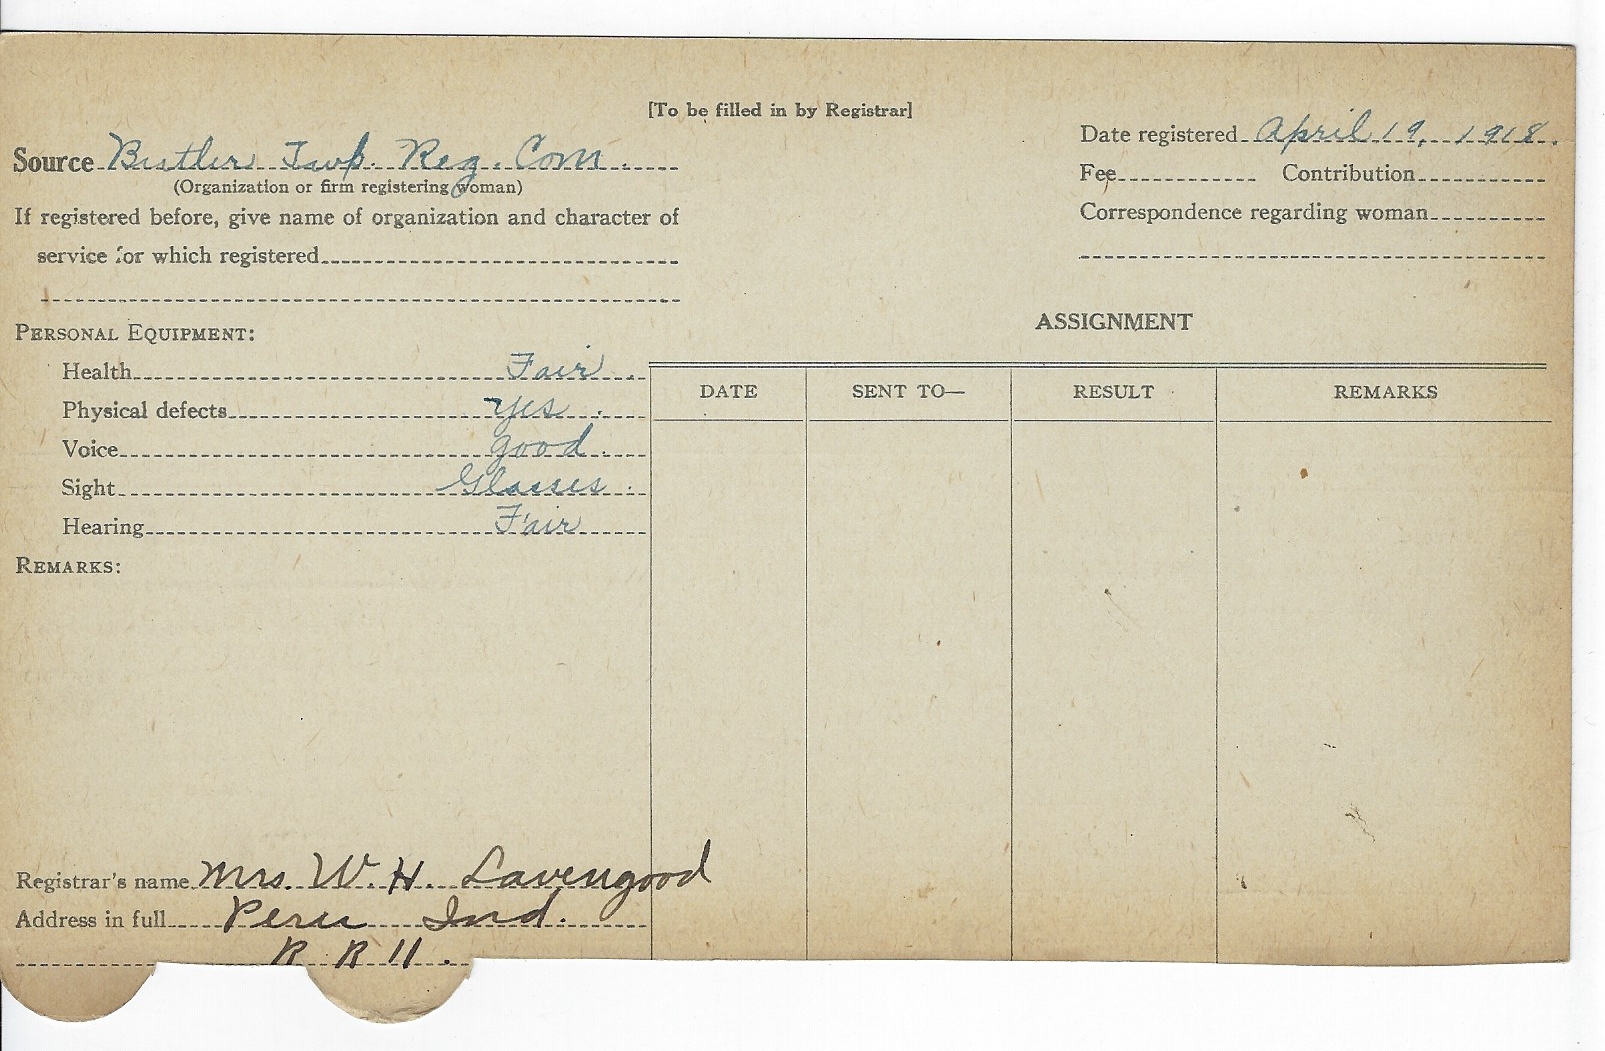 [To be filled in by Registrar]
Source Butler Twp. Reg. Com.
(Organization or firm registering woman)
If registered before, give name of organization and character of
service for which registered
Date registered April 19, 1918.
Fee Contribution
Correspondence regarding woman
PERSONAL EQUIPMENT:
Health Fair.
Physical defects Yes.
Voice good.
Sight Glasses.
Hearing Fair
REMARKS:
ASSIGNMENT
DATE SENT TO— RESULT REMARKS
Registrar's name Mrs. W. H. Lavengood
Address in full Peru Ind.
R R 11.